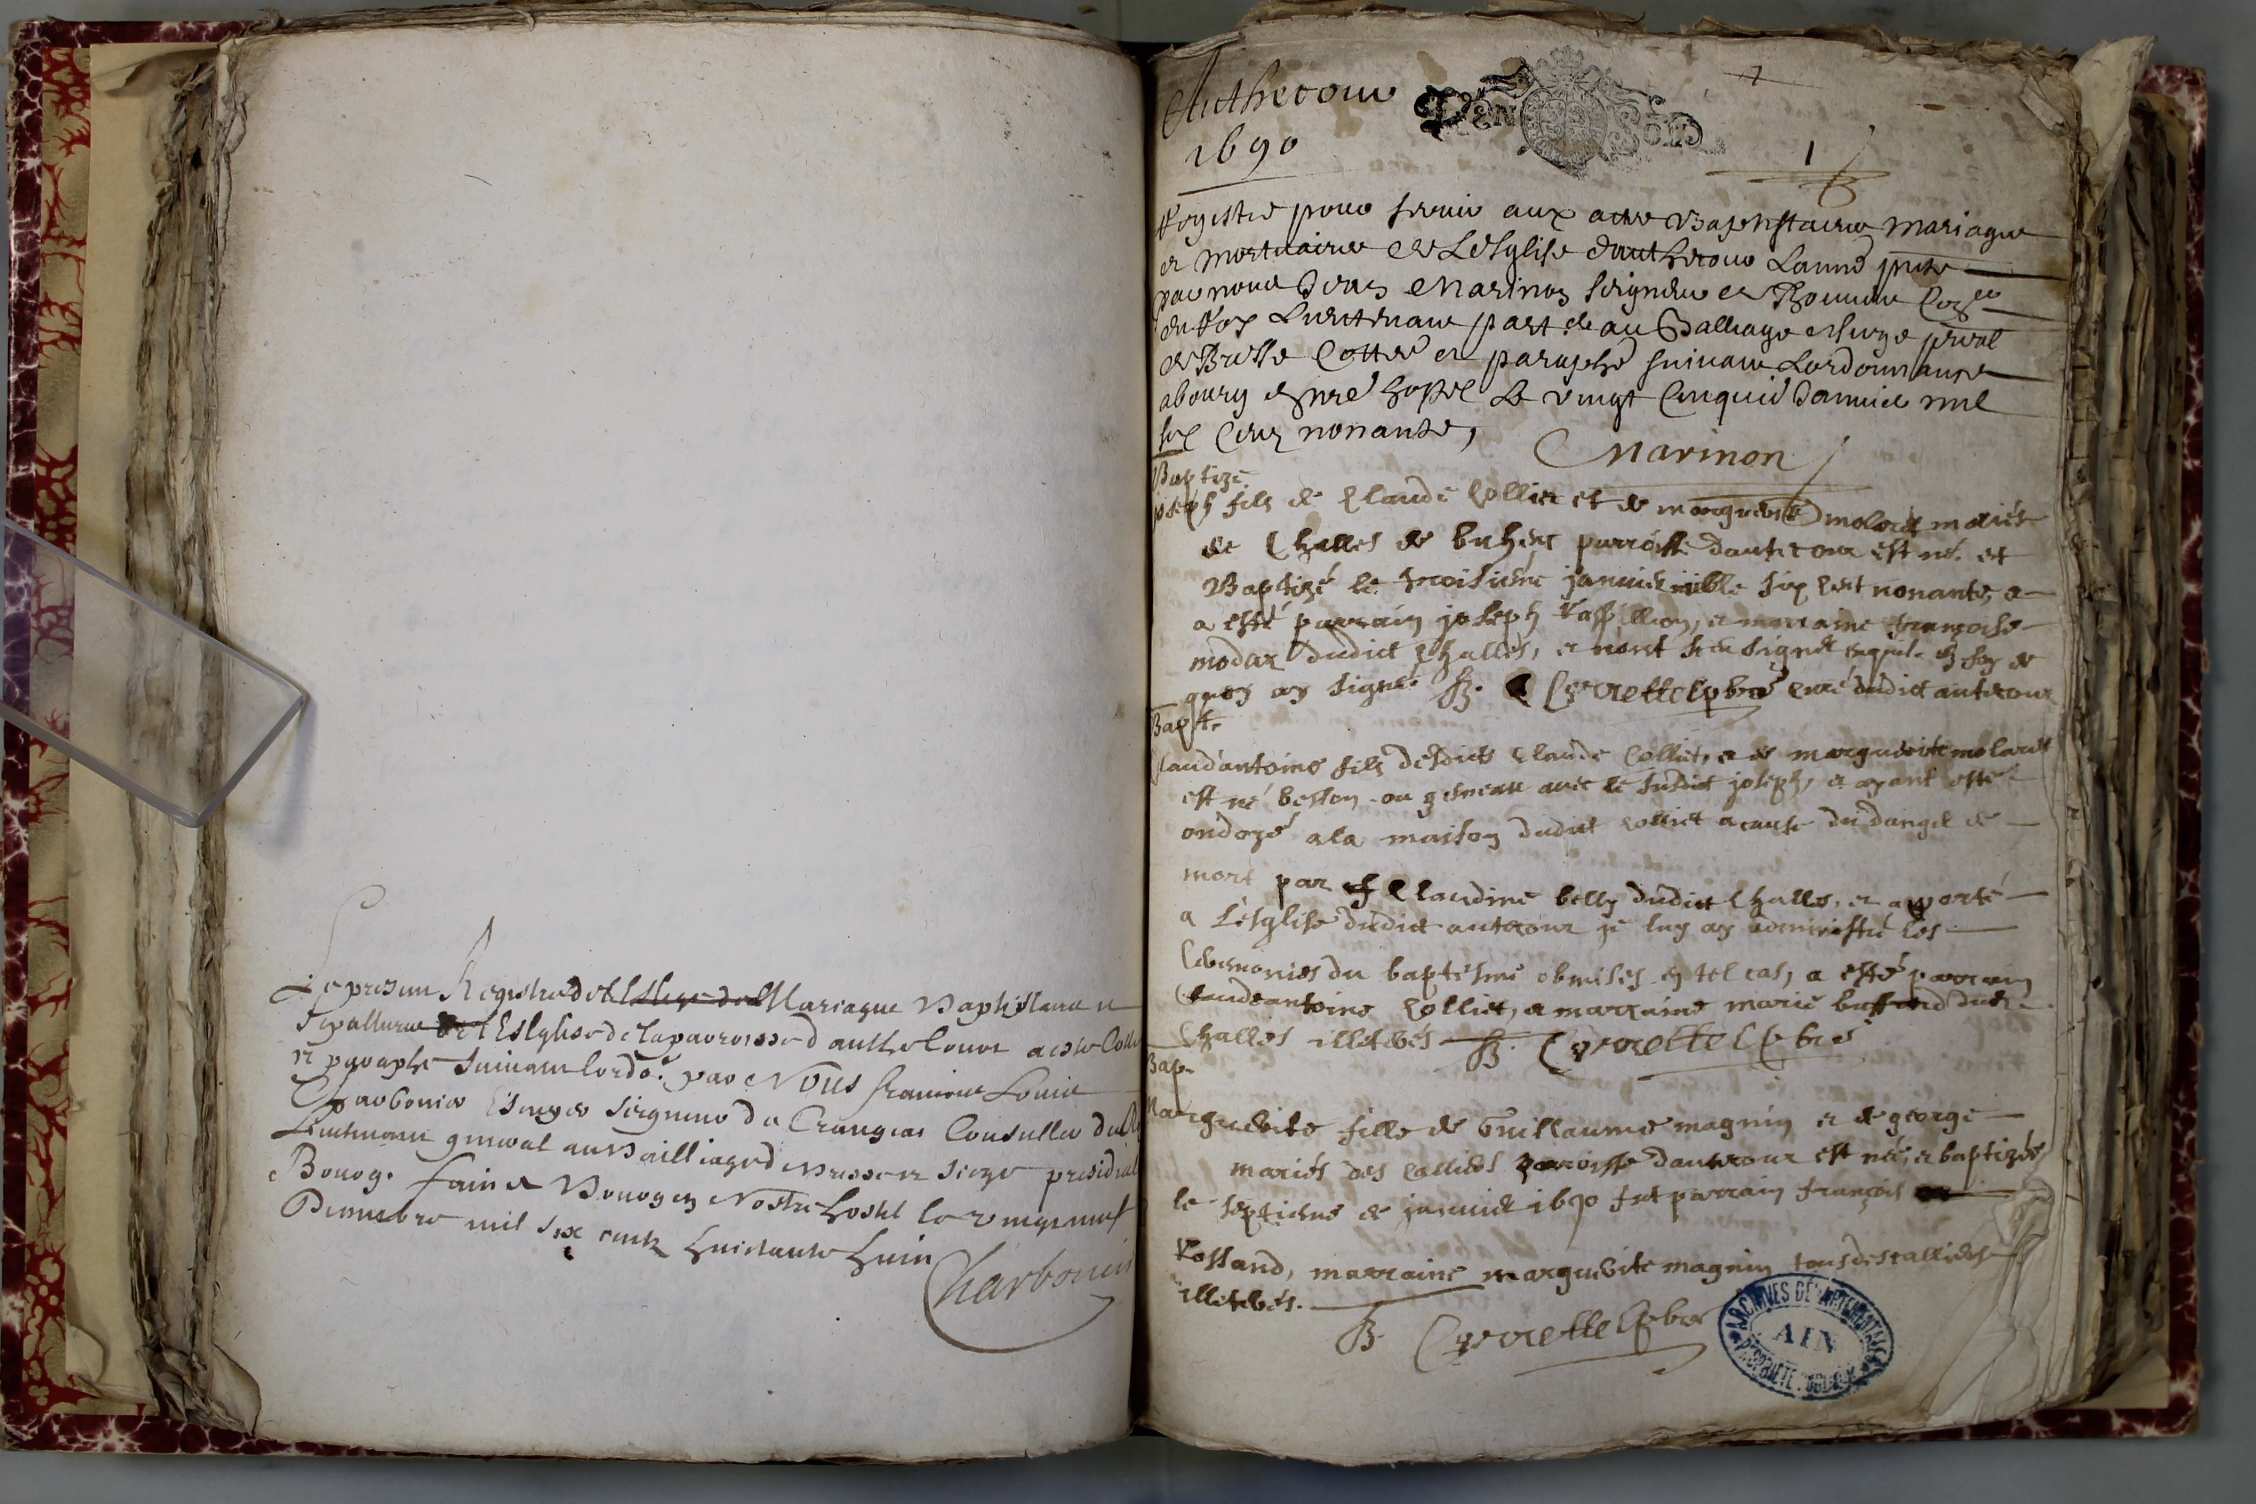 Le present Registre de Mariague Baptistaire et
sepulture de l'Esglise de la parroisse d'authecour a este Cotte
et paraphe suivant lordo.ce par Nous francois Louis
Charbonnier Escuyer seigneur de Crangeac Conseiller du Roy
Lieutenant general au Bailliage de Bresse et siege presidial
Bourg. fait a Bourg en Nostre hostel le vingt neuf
Decembre mil six cents huictante huit
Charbonnier
Authecour
1690
1
Registre pour servir aux actes Baptistaires mariagues
et mortuaires de L'Esglise d'authecour Lannee pnte
par nous Jean Marinon seigneur de Coner
du Roy Lieutenant part.er au Balliage et siege pnal
de Bresse Cotte et paraphé suivant Lordonnance
a bourg en nre hostel Le vingt Cinquie Janvier mil
six Cens nonante,
Marinon
Baptize.
joseph fils de Claude Colliet et de marguerite molard mariés
de Challes de buhenc parroisse dautecour est né et
Baptizé le troisieme janvier mille six cent nonante, a
a esté parrain joseph et marraine françoise
modar dudict Challes, et n'ont sceu signer enquis en foy de
quoy ay signé. Cyvrette pbre curé dudict autecour
Bapt.
Claudantoine fils desdicts Claude Colliet, et de marguerite molard
est né besson ou gemeau avec le susdict joseph, et ayant esté
ondoyé a la maison dudict Colliet a cause du danger de
mort par Claudine belly dudict Challes, et aporté
a L'esglise dudict autecour je luy ay administré les
Ceremonies du baptesme obmises en tel cas, a esté parrain
Claudeantoine Colliet, et marraine marie buffand dudt
Challes illeterés Cyvrette pbre
Bap.
Marguerite fille de Guillaume magnin et de george
mariés des Calliets parroisse dautecour est née, et baptizée
le septieme de janvier 1690 fut parrain françois
Rossand, marraine marguerite magnin tous des Calliets
illeterés.
Cyvrette pbre
ARCHIVES DÉPARTEMENTALES
AIN